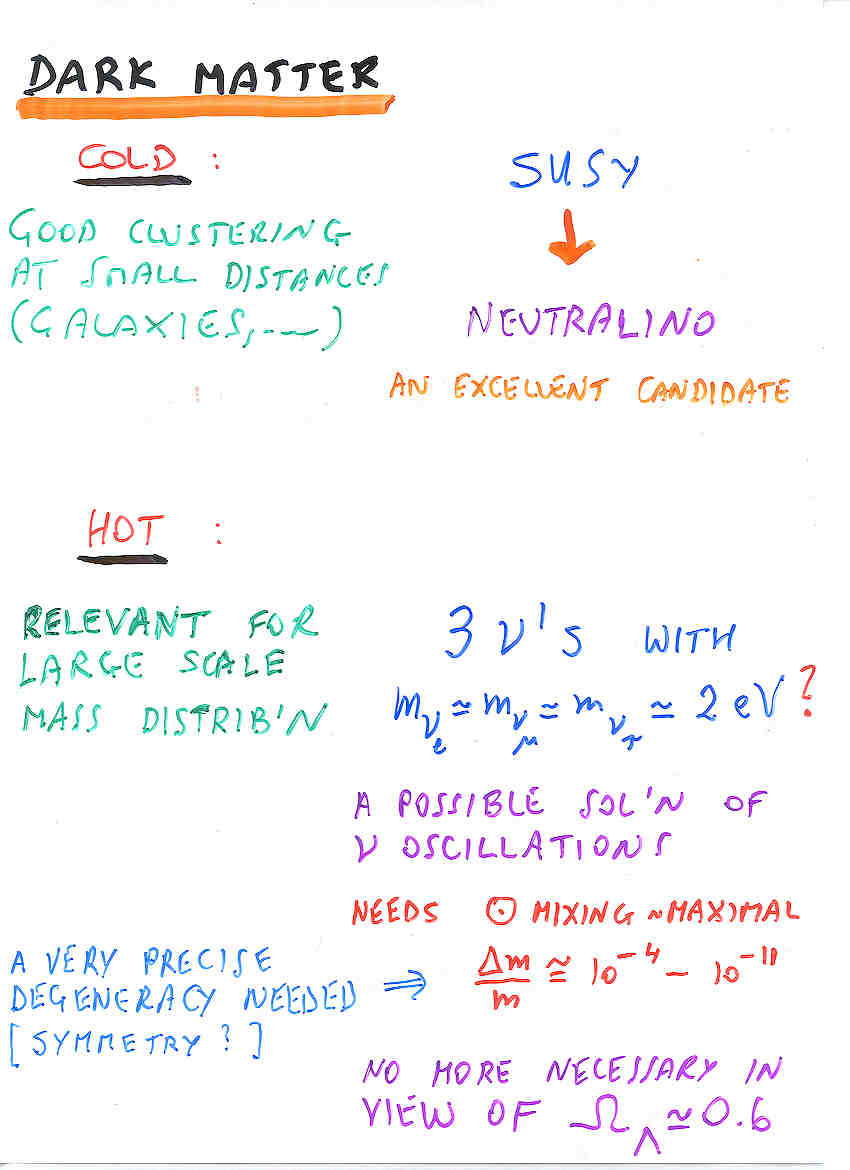 DARK MATTER
COLD :
GOOD CLUSTERING
AT SMALL DISTANCES
(GALAXIES,...)
SUSY
↓
NEUTRALINO
AN EXCELLENT CANDIDATE
HOT :
RELEVANT FOR
LARGE SCALE
MASS DISTRIB'N
3 ν's WITH
m_{ν_e} ≃ m_{ν_μ} ≃ m_{ν_τ} ≃ 2 eV ?
A POSSIBLE SOL'N OF
ν OSCILLATIONS
NEEDS ⊙ MIXING ~MAXIMAL
A VERY PRECISE
DEGENERACY NEEDED ⇒
[SYMMETRY ?]
Δm/m ≅ 10^{-4} - 10^{-11}
NO MORE NECESSARY IN
VIEW OF Ω_Λ ≃ 0.6